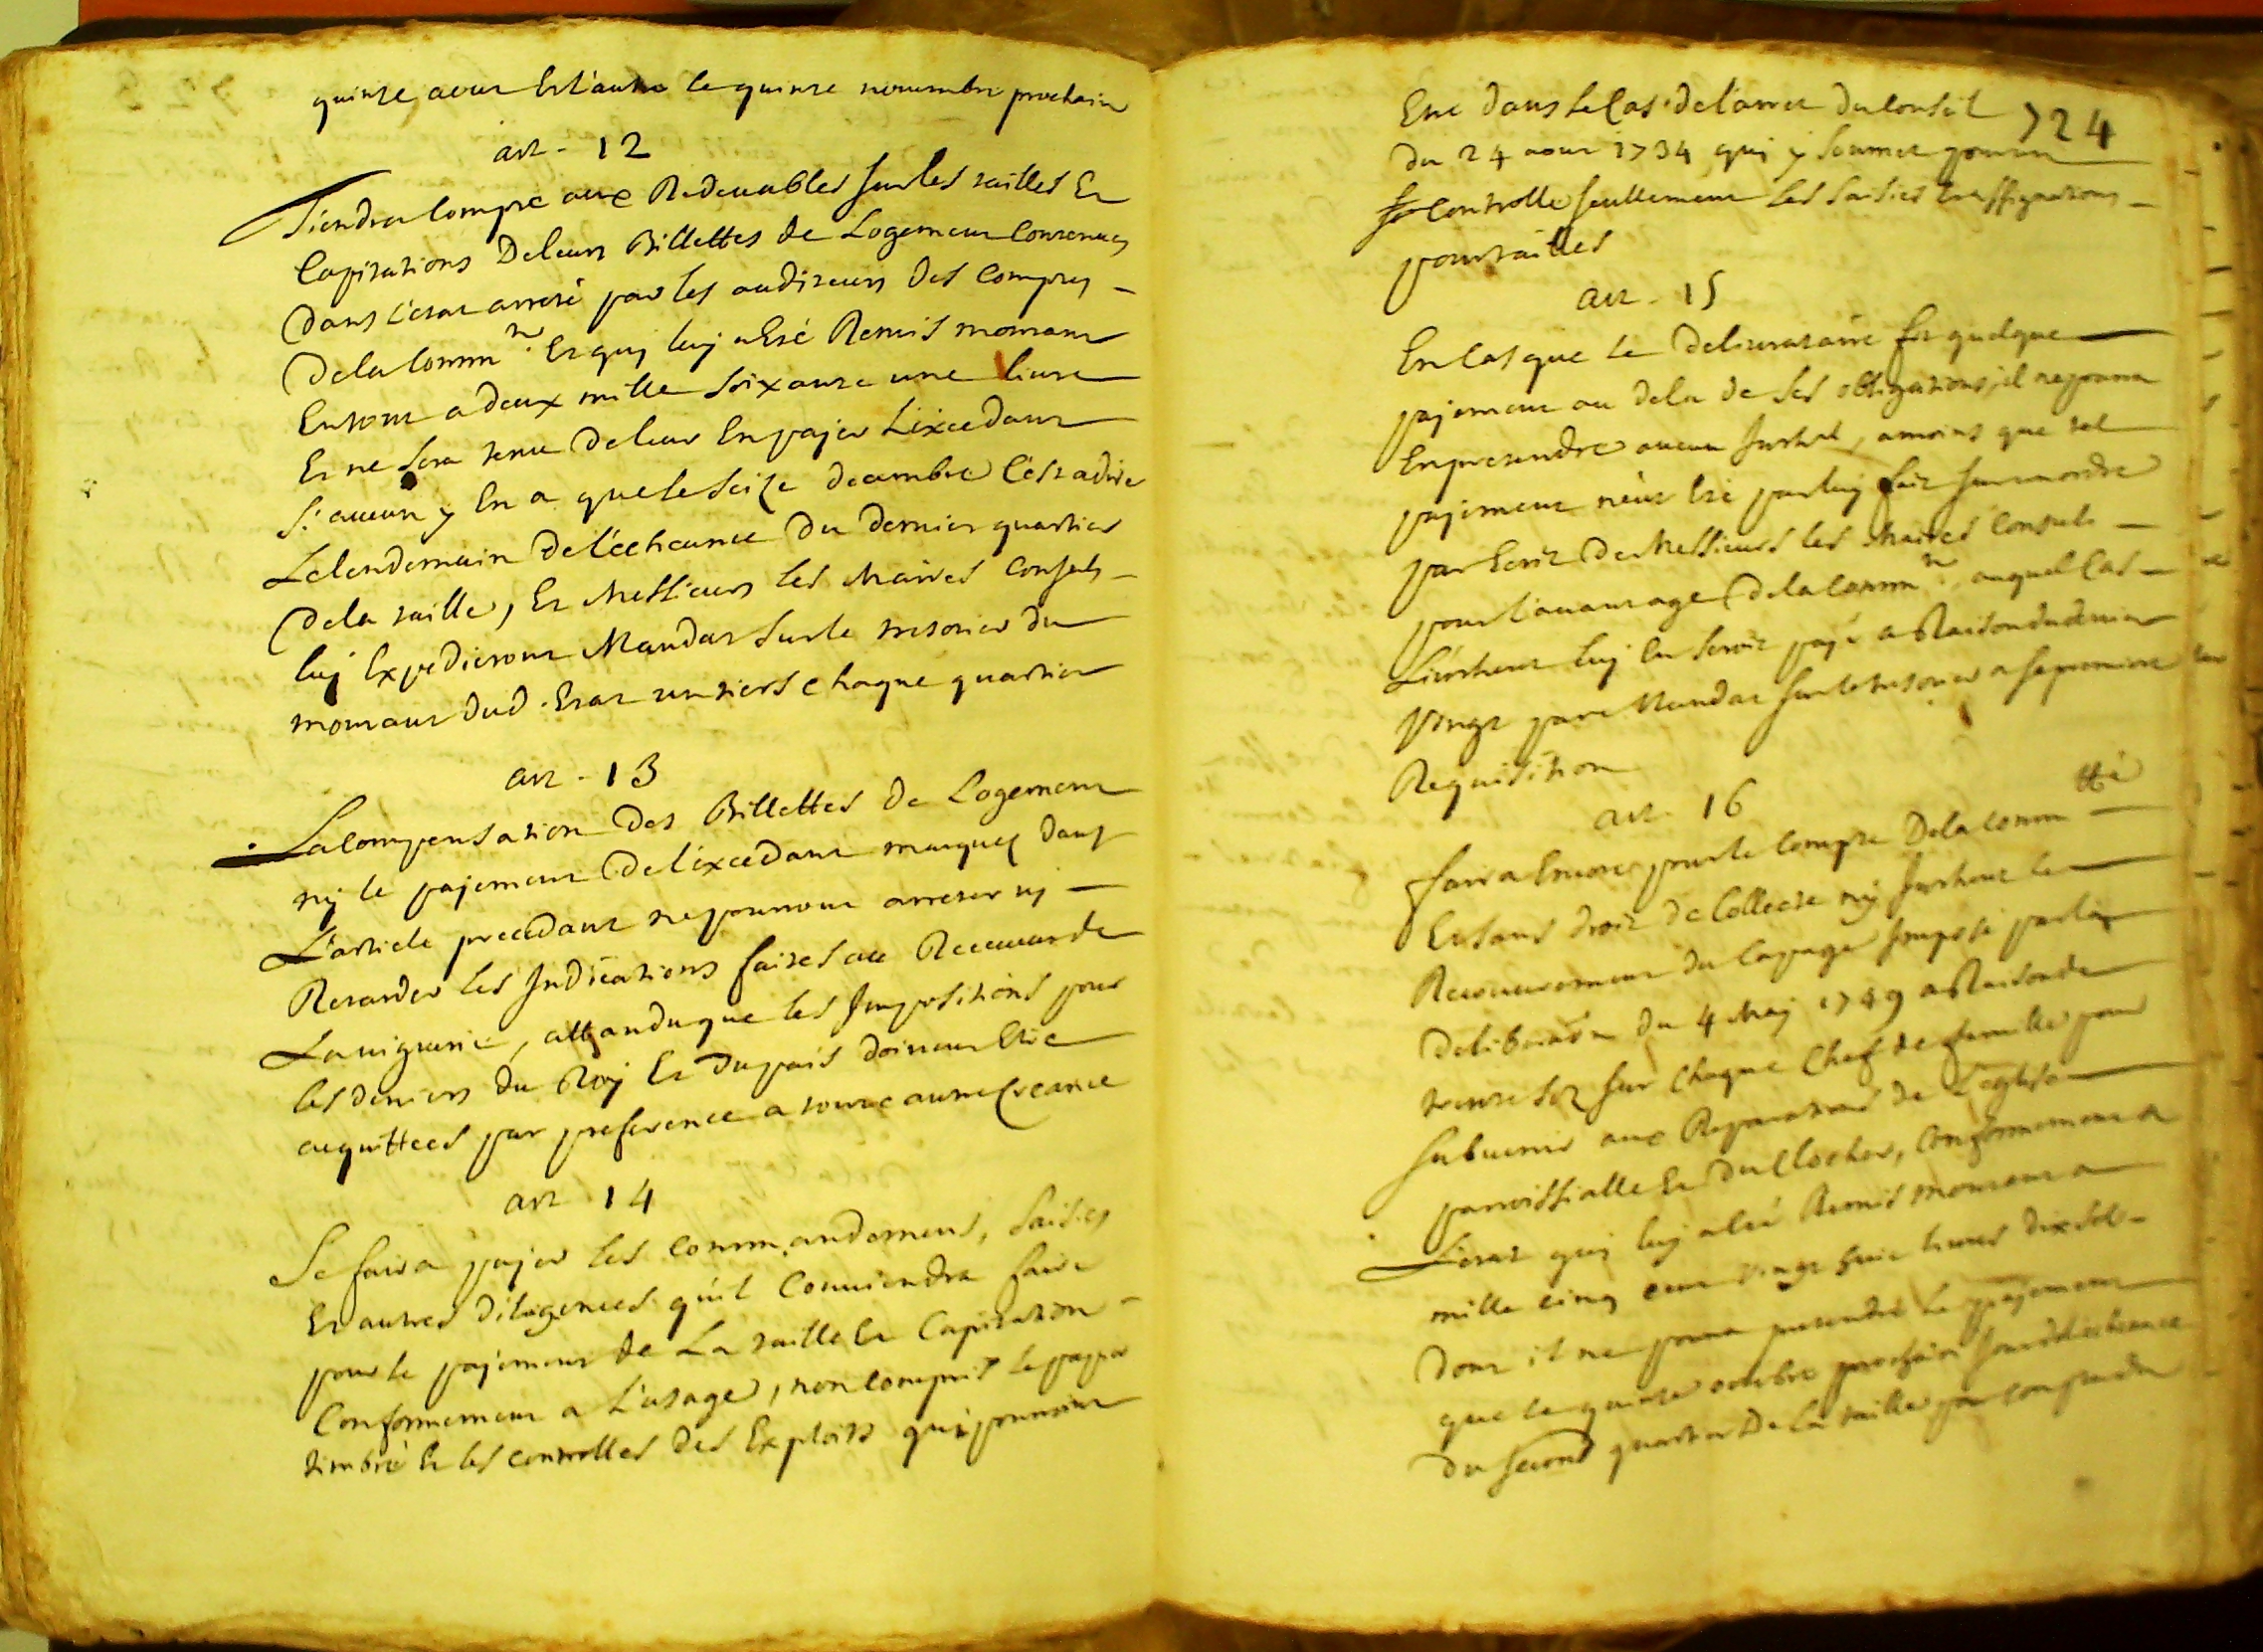 quinze aoust Et l'autre le quinze nouembre prochain
art. 12
Tiendra Compte aux Redeuables sur les tailles Et
Capitations De leurs Billettes de Logement Contenues
Dans l'état arreté par les auditeurs des Comptes
De la Commté. Et qui luy a Eté Remis montant
En tout a deux mille soixante une liure
Et ne sera tenu De leur En payer L'éxcedant
s'aucun y En a que le seize decembre C'est a dire
Le lendemain De l'écheance Du dernier quartier
De la taille, Et Messieurs les Maires Consuls
luy Expedieront Mandat sur le tresorier du
montant dud. Etat un tiers chaque quartier
art. 13
La Compensation des Billettes de Logement
ny le payement De l'éxcedant marqués dans
L'article precedant ne pourront arreter ny
Retarder les Indications faites au Receueur de
La uiguerie, attandu que les Impositions pour
les deniers du Roy Et du païs doiuent Etre
acquittees par preference a toute autre Creance
art. 14
Se faira payer les Commandements, saisies
Et autres diligences qu'il Conuiendra faire
pour le payement de La taille Et Capitation
Conformement a L'usage, non Compris le papier
timbré Et les controlles des Exploits qui pourroint
724
Etre dans le Cas de l'arret du Conseil
du 24 aout 1734 qui y soumet pour
le Controlle seullement les saisies Et assignations
pour tailles
art. 15
En Cas que le Deliurataire fit quelque
payement au dela de ses obligations, il ne pourra
En pretendre aucun surhat, a moins que tel
payement n'eut Eté par luy fait sur un ordre
par Ecrit de Messieurs les Maires Consuls
pour l'auantage De la Commté. auquel Cas
L'inthret luy En seroit payé a Raison du denier
Vingt par Mandat sur le tresorier a sa premiere
Requisition
art. 16
faira Encore pour le Compte De la Commtté
Et sans droit de Collecte ny surhaut le
Recouurement du Capage Imposé par la
deliberaõn du 4 May 1749 a Raison de
trente sols sur chaque Chef de famille pour
subuenir aux Reparations de L'eglise
parroissialle Et Du Clocher, Conformement a
L'état qui luy a Eté Remis montant a
mille cinq cent Vingt huit liures dix sols
Dont il ne pourra pretendre le payement
que le quinze octobre prochain jour d'écheance
du second quartier De la taille